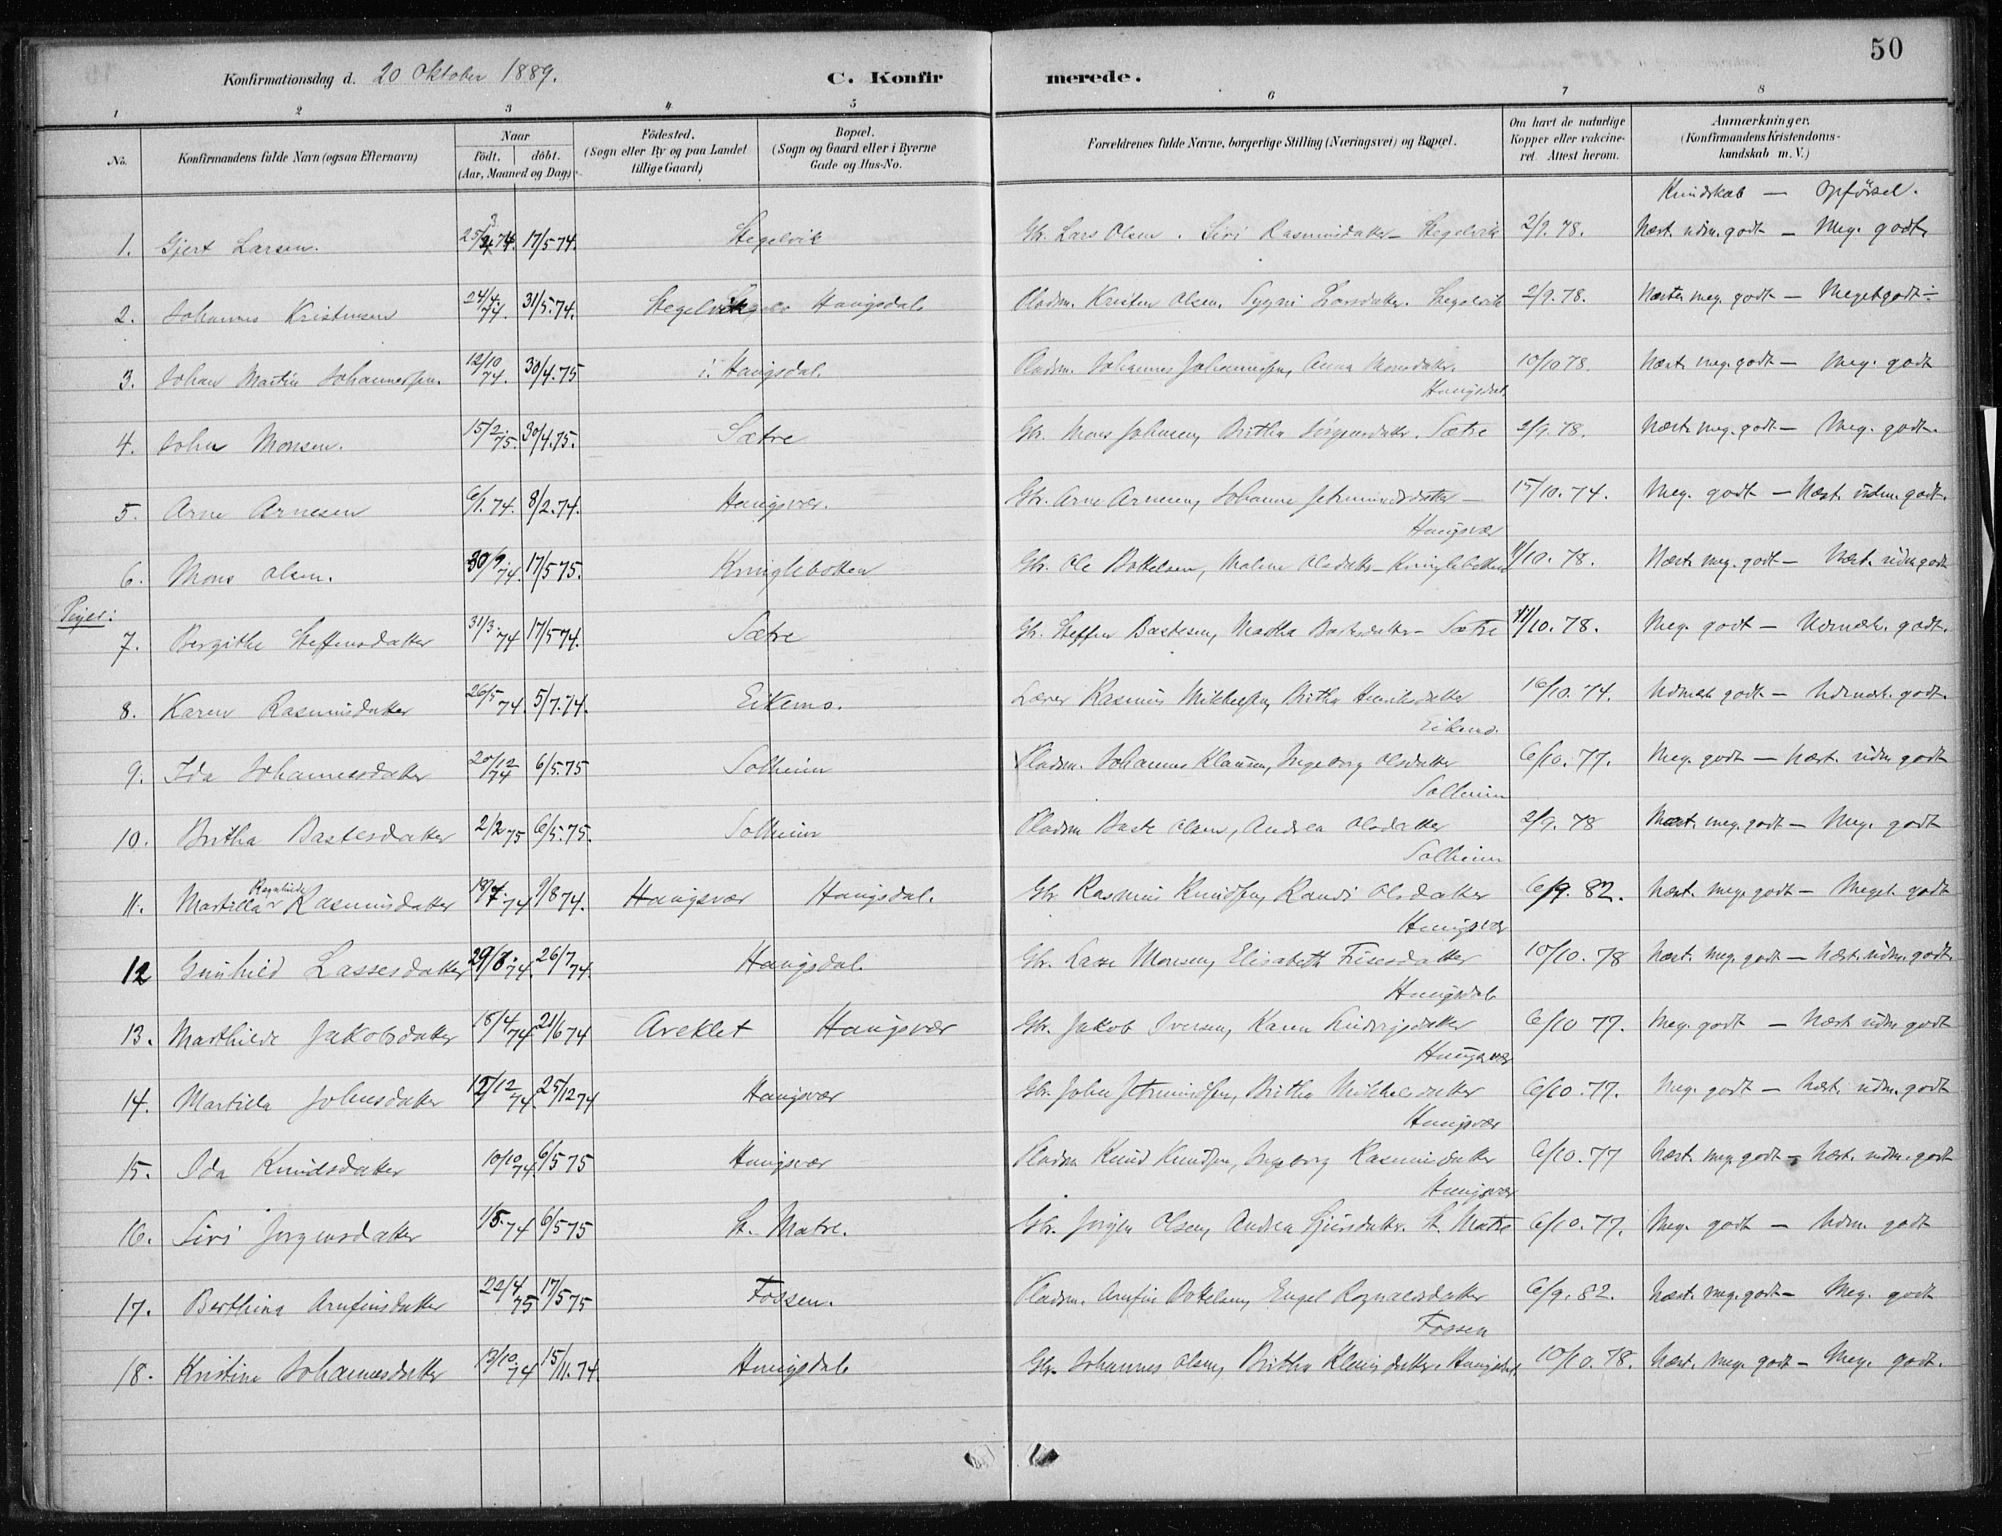 50
Konfirmationsdag d. 20 Oktober 1889. C. Konfirmerede.
1 2 3 4 5 6 7 8
No. Konfirmandens fulde Navn (ogsaa Efternavn) Naar Födt. döbt. (Aar, Maaned og Dag) Födested. (Sogn eller By og paa Landet tillige Gaard) Bopæl. (Sogn og Gaard eller i Byerne Gade og Hus-No. Forældrenes fulde Navne, borgerlige Stilling (Næringsvei) og Bopæl. Om havt de naturlige Kopper eller vakcineret. Attest herom. Anmærkninger. (Konfirmandens Kristendomskundskab m. V.)
Kundskab — Opførsel.
1. Gjert Larsen. 25/3 74. 17/5 74. Hegelvik Gbr. Lars Olsen. Siri Rasmusdatter - Hegelvik 2/9. 78. Næst. udm. godt — Meg. godt
2. Johannes Kristensen 24/4. 74. 31/5. 74. Hegelvik Haugsdal Pladsm. Kristen Olsen, Larsdatter. Hegelvik 2/9. 78. Næsten meg. godt — Meget godt
3. Johan Martin Johannessen. 12/10 74. 30/4. 75 i. Haugsdal. Pladsm. Johannes Johannessen, Anna Monsdatter. 10/10 78. Næst. meg. godt — Meg. godt
Haugsdal.
4. John Monsen. 15/2. 75. 30/4. 75. Sætre Gbr. Mons Johnsen, Britha Jörgensdatter. Sætre 2/9. 78. Næst. meg. godt — Meg. godt.
5. Arne Arnesen 6/1. 74. 8/2. 74. Haugsvær. Gbr. Arne Arnesen, Johanne Jetmundsdatter — 15/10. 74. Meg. godt — Næst. udm. godt.
Haugsvær
6. Mons Olsen. 30/9. 74. 17/5 75. Kringlebotten Gbr. Ole Bottelsen, Malene Olsdatter - Kringlebotten 11/10. 78. Næst. meg. godt — Næst. udm. godt
Piger:
7. Bergithe Steffensdatter 31/3. 74 17/5 74. Sætre Gbr. Steffen Bastesen, Martha Bastesdatter - Sætre 11/10. 78. Meg. godt — Udmærk. godt.
8. Karen Rasmusdatter 26/5 74. 5/7. 74. Eikemo. Lærer Rasmus Mikkelsen, Britha Henriksdatter 16/10. 74. Udmærk. godt — Udmærk. godt.
Eikemo.
9. Ida Johannesdatter 20/12 74 6/5. 75 Solheim Pladsm. Johannes Klausen, Ingeborg Olsdatter 6/10. 77. Meg. godt — Næst. udm. godt
Solheim
10. Britha Bastesdatter 2/2 75 6/5. 75. Solheim Pladsm Baste Olsen, Andrea Olsdatter 2/9. 78 Næst. meg. godt — Meg. godt
Solheim
11. Martilla Ragnhilde Rasmusdatter 18/7. 74 9/8 74. Haugsvær Haugsdal. Gbr Rasmus Knudsen, Randi Olsdatter 6/9. 82. Næst. meg. godt — Meget godt
Haugsvær
12 Gunhild Lassesdatter 29/3. 74. 26/7 74. Haugsdal. Gbr. Lasse Monsen, Elisabeth Finesdatter 10/10. 78 Næst. meg. godt — Næst. udm. godt.
Haugsdal
13. Marthilde Jakobsdatter 18/4 74 21/6 74 Areklet Haugsvær Gbr. Jakob Iversen, Karen Ludvigsdatter 6/10 77. Meg. godt — Næst. udm. godt
Haugsvær
14. Martilla Johnsdatter 12/12 74. 25/12 74 Haugsvær Gbr. John Jetmundsen, Britha Mikkelsdatter 6/10. 77. Meg. godt — Næst. udm. godt
Haugsvær
15. Ida Knudsdatter 10/10 74. 6/5 75 Haugsvær Pladsm Knud Knudsen, Ingeborg Rasmusdatter 6/10. 77 Næst. meg. godt — Næst. udm. godt
Haugsvær
16. Siri Jørgensdatter 1/5. 74 6/5 75 St. Matre. Gbr. Jørgen Olsen, Andrea St. Matre 6/10. 77. Meg. godt — Udm. godt
17. Berthina Arnfinsdatter 22/4 75 17/5 75 Fossen. Pladsm. Arnfin Botelsen, Engel Rognaldsdatter 6/9. 82. Næst. meg. godt — Meg. godt
Fossen
18. Kristine Johannesdatter 13/10 74 15/11. 74. Haugsdal Gbr. Johannes Olsen, Britha Haugsdal 10/10. 78. Næst. meg. godt — Meg. godt.